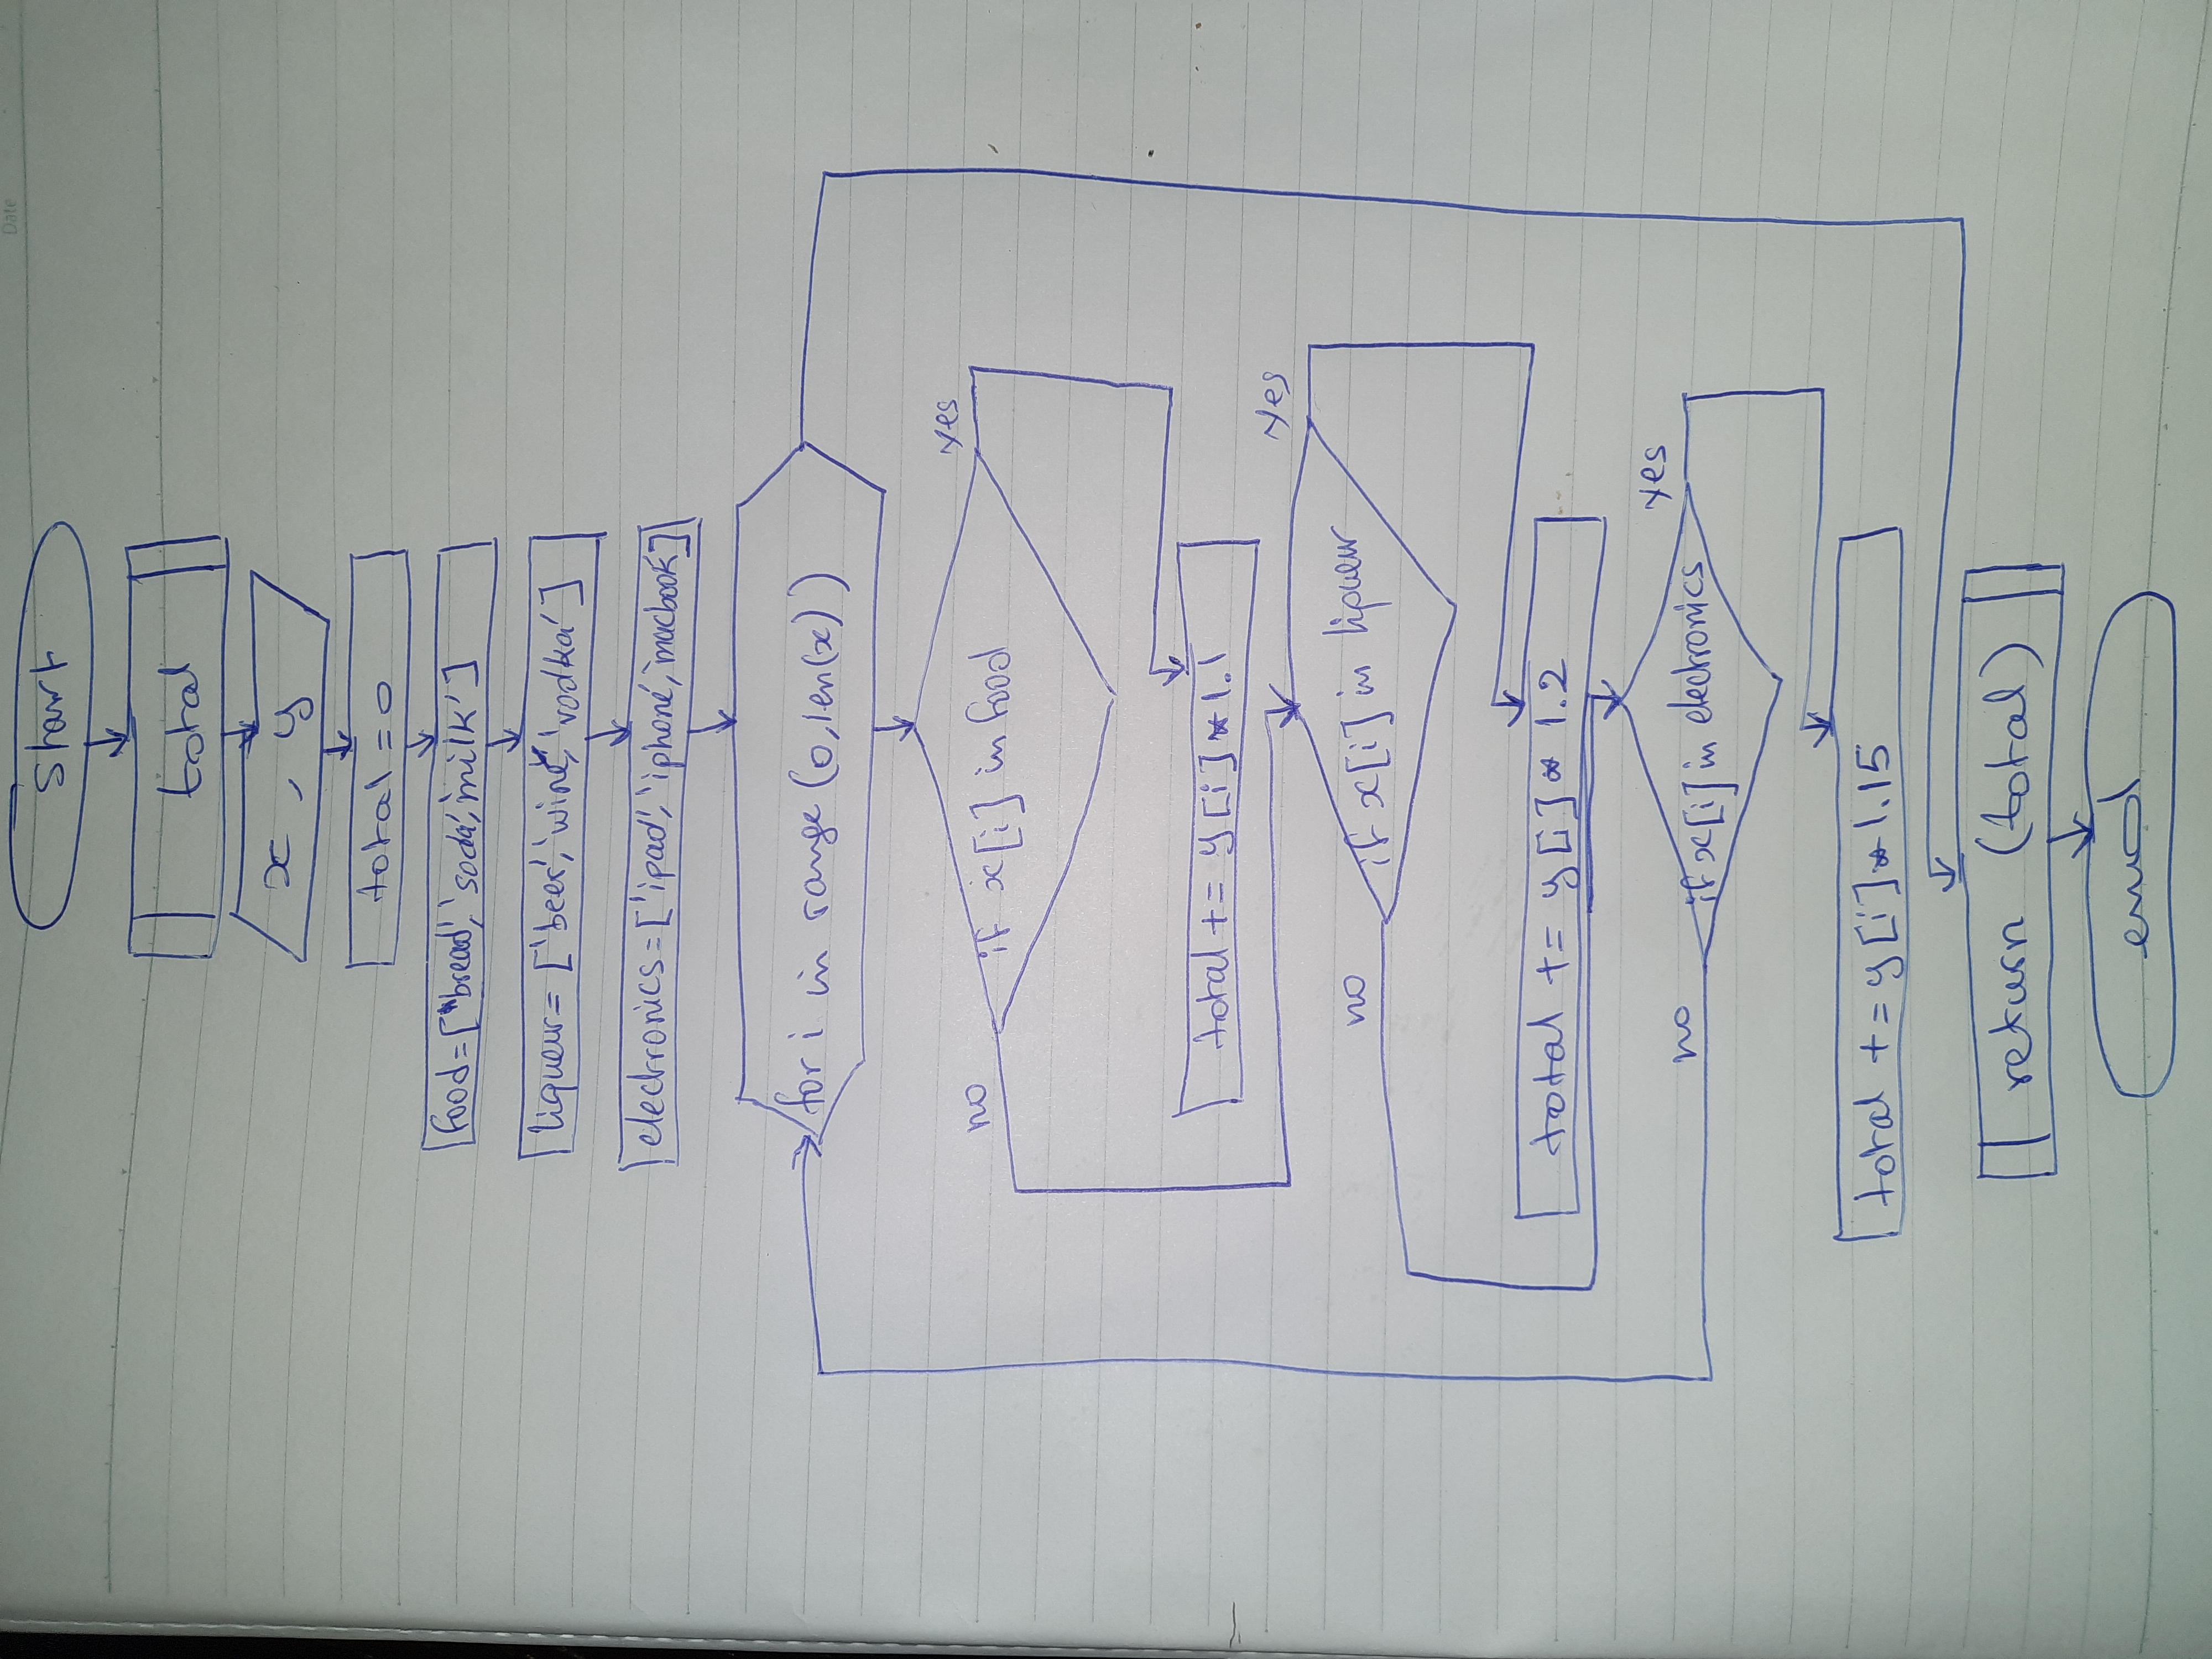 Date
start
total
x, y
total = 0
food = ['bread', 'soda', 'milk']
liqueur = ['beer', 'wine', 'vodka']
electronics = ['ipad', 'iphone', 'macbook']
for i in range (0, len(x))
yes
no
if x[i] in food
total += y[i] * 1.1
yes
no
if x[i] in liqueur
total += y[i] * 1.2
yes
no
if x[i] in electronics
total += y[i] * 1.15
return (total)
end